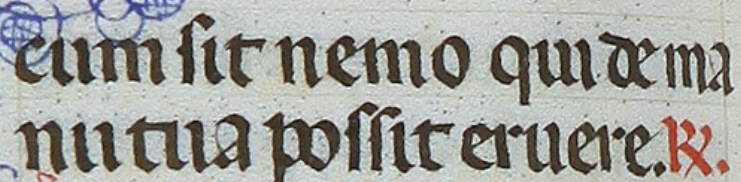 cum sit nemo qui de ma
nu tua possit eruere. ℟.